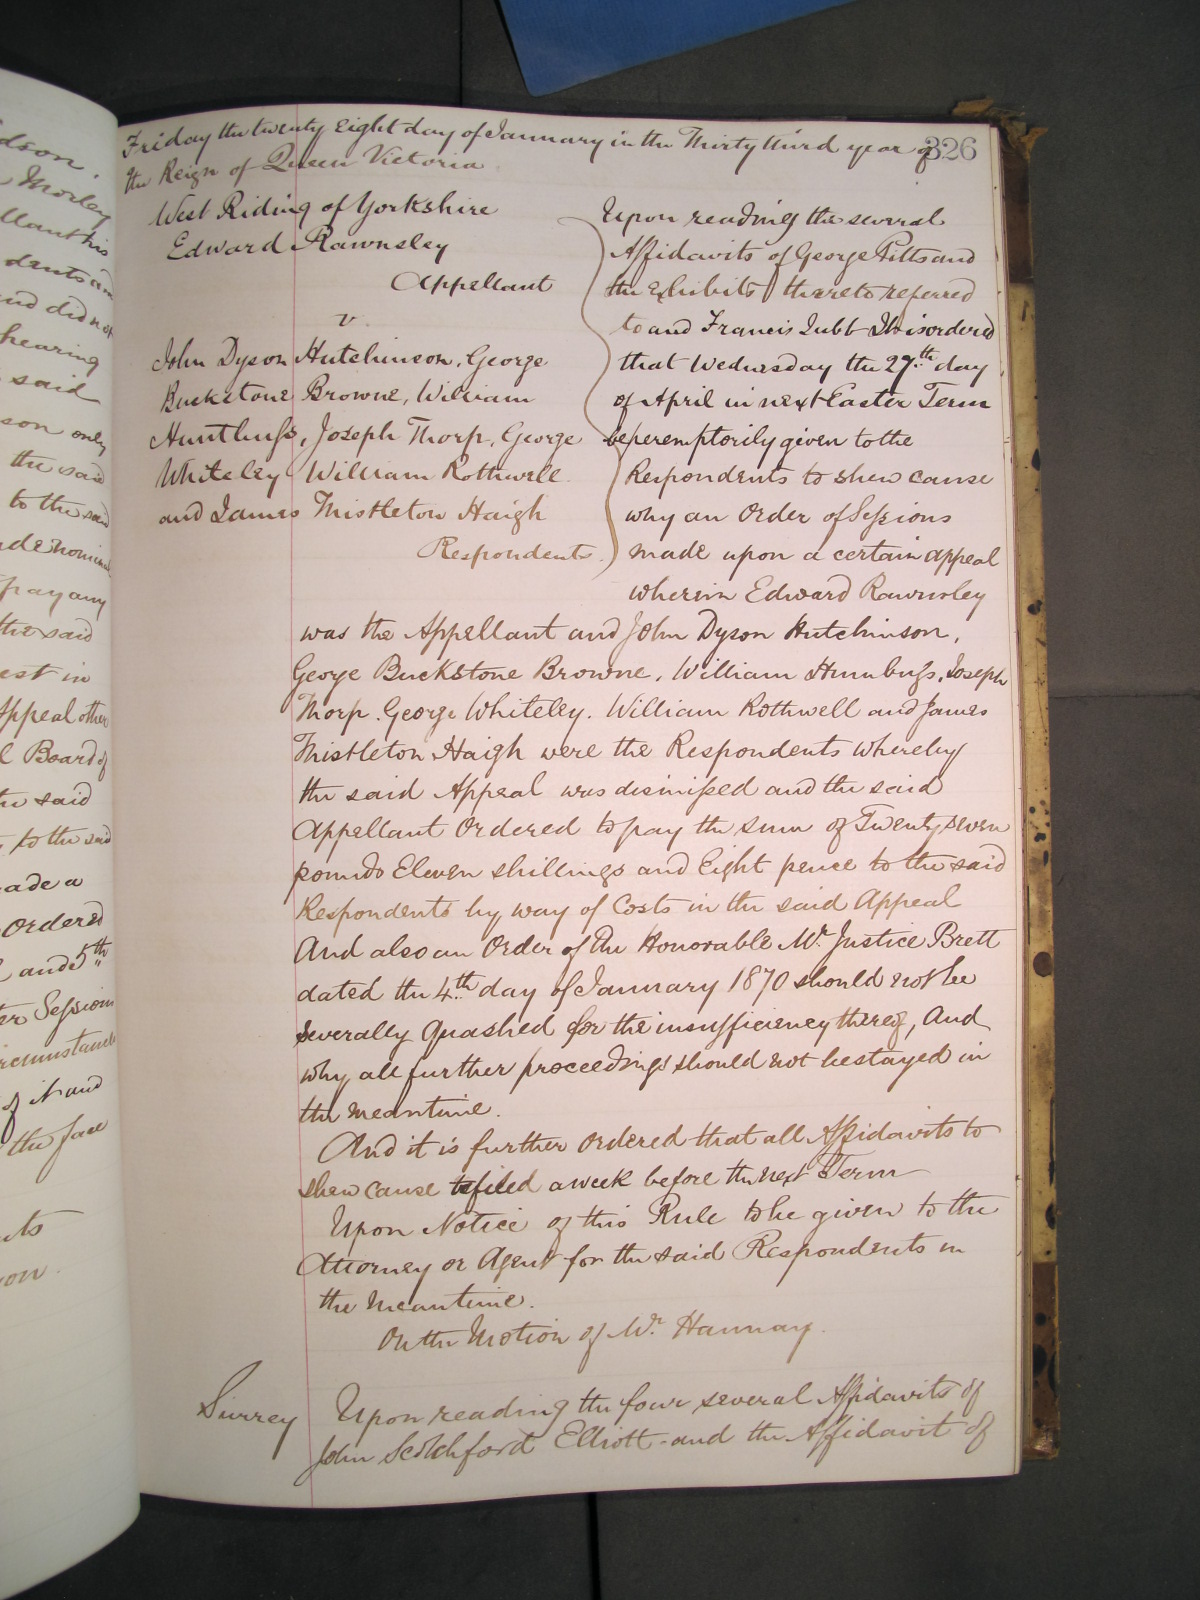 Friday the twenty Eight day of January in the Thirty third year of 326
the Reign of Queen Victoria
West Riding of Yorkshire
Edward Rawnsley
Appellant
v.
John Dyson Hutchinson, George
Buckstone Browne, William
Joseph Thorp, George
Whiteley William Rothwell
and James Thistleton Haigh
Respondents
Upon reading the several
Affidavits of George Pitts and
the Exhibits thereto referred
to and Francis Jubb It is ordered
that Wednesday the 27th day
of April in next Easter Term
be peremptorily given to the
Respondents to shew cause
why an Order of Sessions
made upon a certain appeal
wherein Edward Rawnsley
was the Appellant and John Dyson Hutchinson,
George Buckstone Browne, William Joseph
Thorp. George Whiteley. William Rothwell and James
Thistleton Haigh were the Respondents whereby
the said Appeal was dismissed and the said
Appellant Ordered to pay the sum of Twenty seven
pounds Eleven shillings and Eight pence to the said
Respondents by way of Costs in the said Appeal
And also an Order of the Honorable Mr. Justice Brett
dated the 4th day of January 1870 should not be
severally quashed for the insufficiency thereof, And
why all further proceedings should not be stayed in
the meantime.
And it is further ordered that all Affidavits to
shew cause be filed a week before the next Term
Upon Notice of this Rule to be given to the
Attorney or Agent for the said Respondents in
the Meantime.
On the Motion of Mr. Hannay.
Surrey Upon reading the four several Affidavits of
John Scotchford Elliott and the Affidavit of